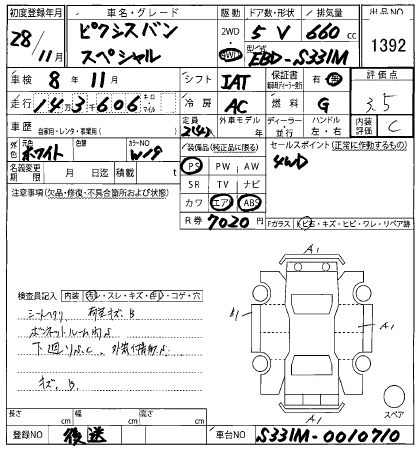 初度登録年月 車名・グレード 駆動 ドア数・形状 排気量 出品NO
28/11月 ピクシスバン スペシャル 2WD 4WD 5 V 660 cc 1392
型式 EBD-S331M
車検 8年11月 シフト IAT 保証書 有 無 評価点
走行 143606 キロ・マイル 冷房 AC 燃料 G 3.5
車歴 自家用・レンタ・事業用 定員 2(4)人 外車モデル 年 ディーラー・並行 ハンドル 左・右 内装評価 C
外色 元色 ホワイト 色替 カラーNO W19
装備品(純正品に限る) セールスポイント(正常に作動するもの)
名義変更期限 月 日迄 積載 t PS PW AW 4WD
注意事項(欠品・修復・不具合箇所および状態) SR TV ナビ
カワ エアB ABS
R券 7020円 Fガラス トビ石・キズ・ヒビ・ワレ・リペア跡
A1
検査員記入 内装 汚れ・スレ・キズ・コゲ・穴
シートヘタリ 荷室キズ、B
A1 A1
ボンネットルーム内S
下廻りS、C、
キズ、B、
スペア
A1
長さ cm 幅 cm 高さ cm
登録NO 後送 車台NO S331M-0010710